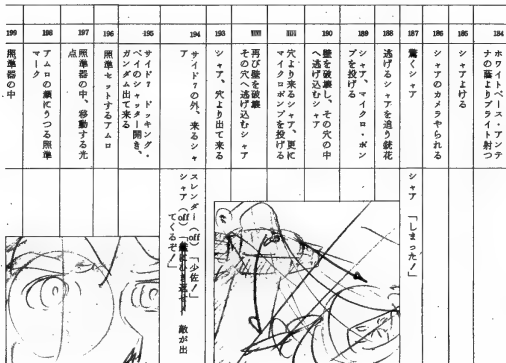 184
ホワイトベース・アンテ
ナの蔭よりブライト射つ
185
シャアよける
186
シャアのカメラやられる
187
驚くシャア
シャア 「しまった！」
188
逃げるシャアを追う銃花
189
シャア、マイクロ・ボン
ブを投げる
190
壁を破壊し、その穴の中
へ逃げ込むシャア
191
穴より来るシャア、更に
マイクロボンブを投げる
192
再び壁を破壊
その穴へ逃げ込むシャア
193
シャア、穴より出て来る
194
サイド7の外、来るシャ
ア
スレンダー(off)「少佐！」
シャア(off)
敵が出
てくるぞ！」
195
サイド7 ドッキング・
ベイのシャッター開き、
ガンダム出て来る
196
照準セットするアムロ
197
照準器の中、移動する光
点
198
アムロの顔にうつる照準
マーク
199
照準器の中